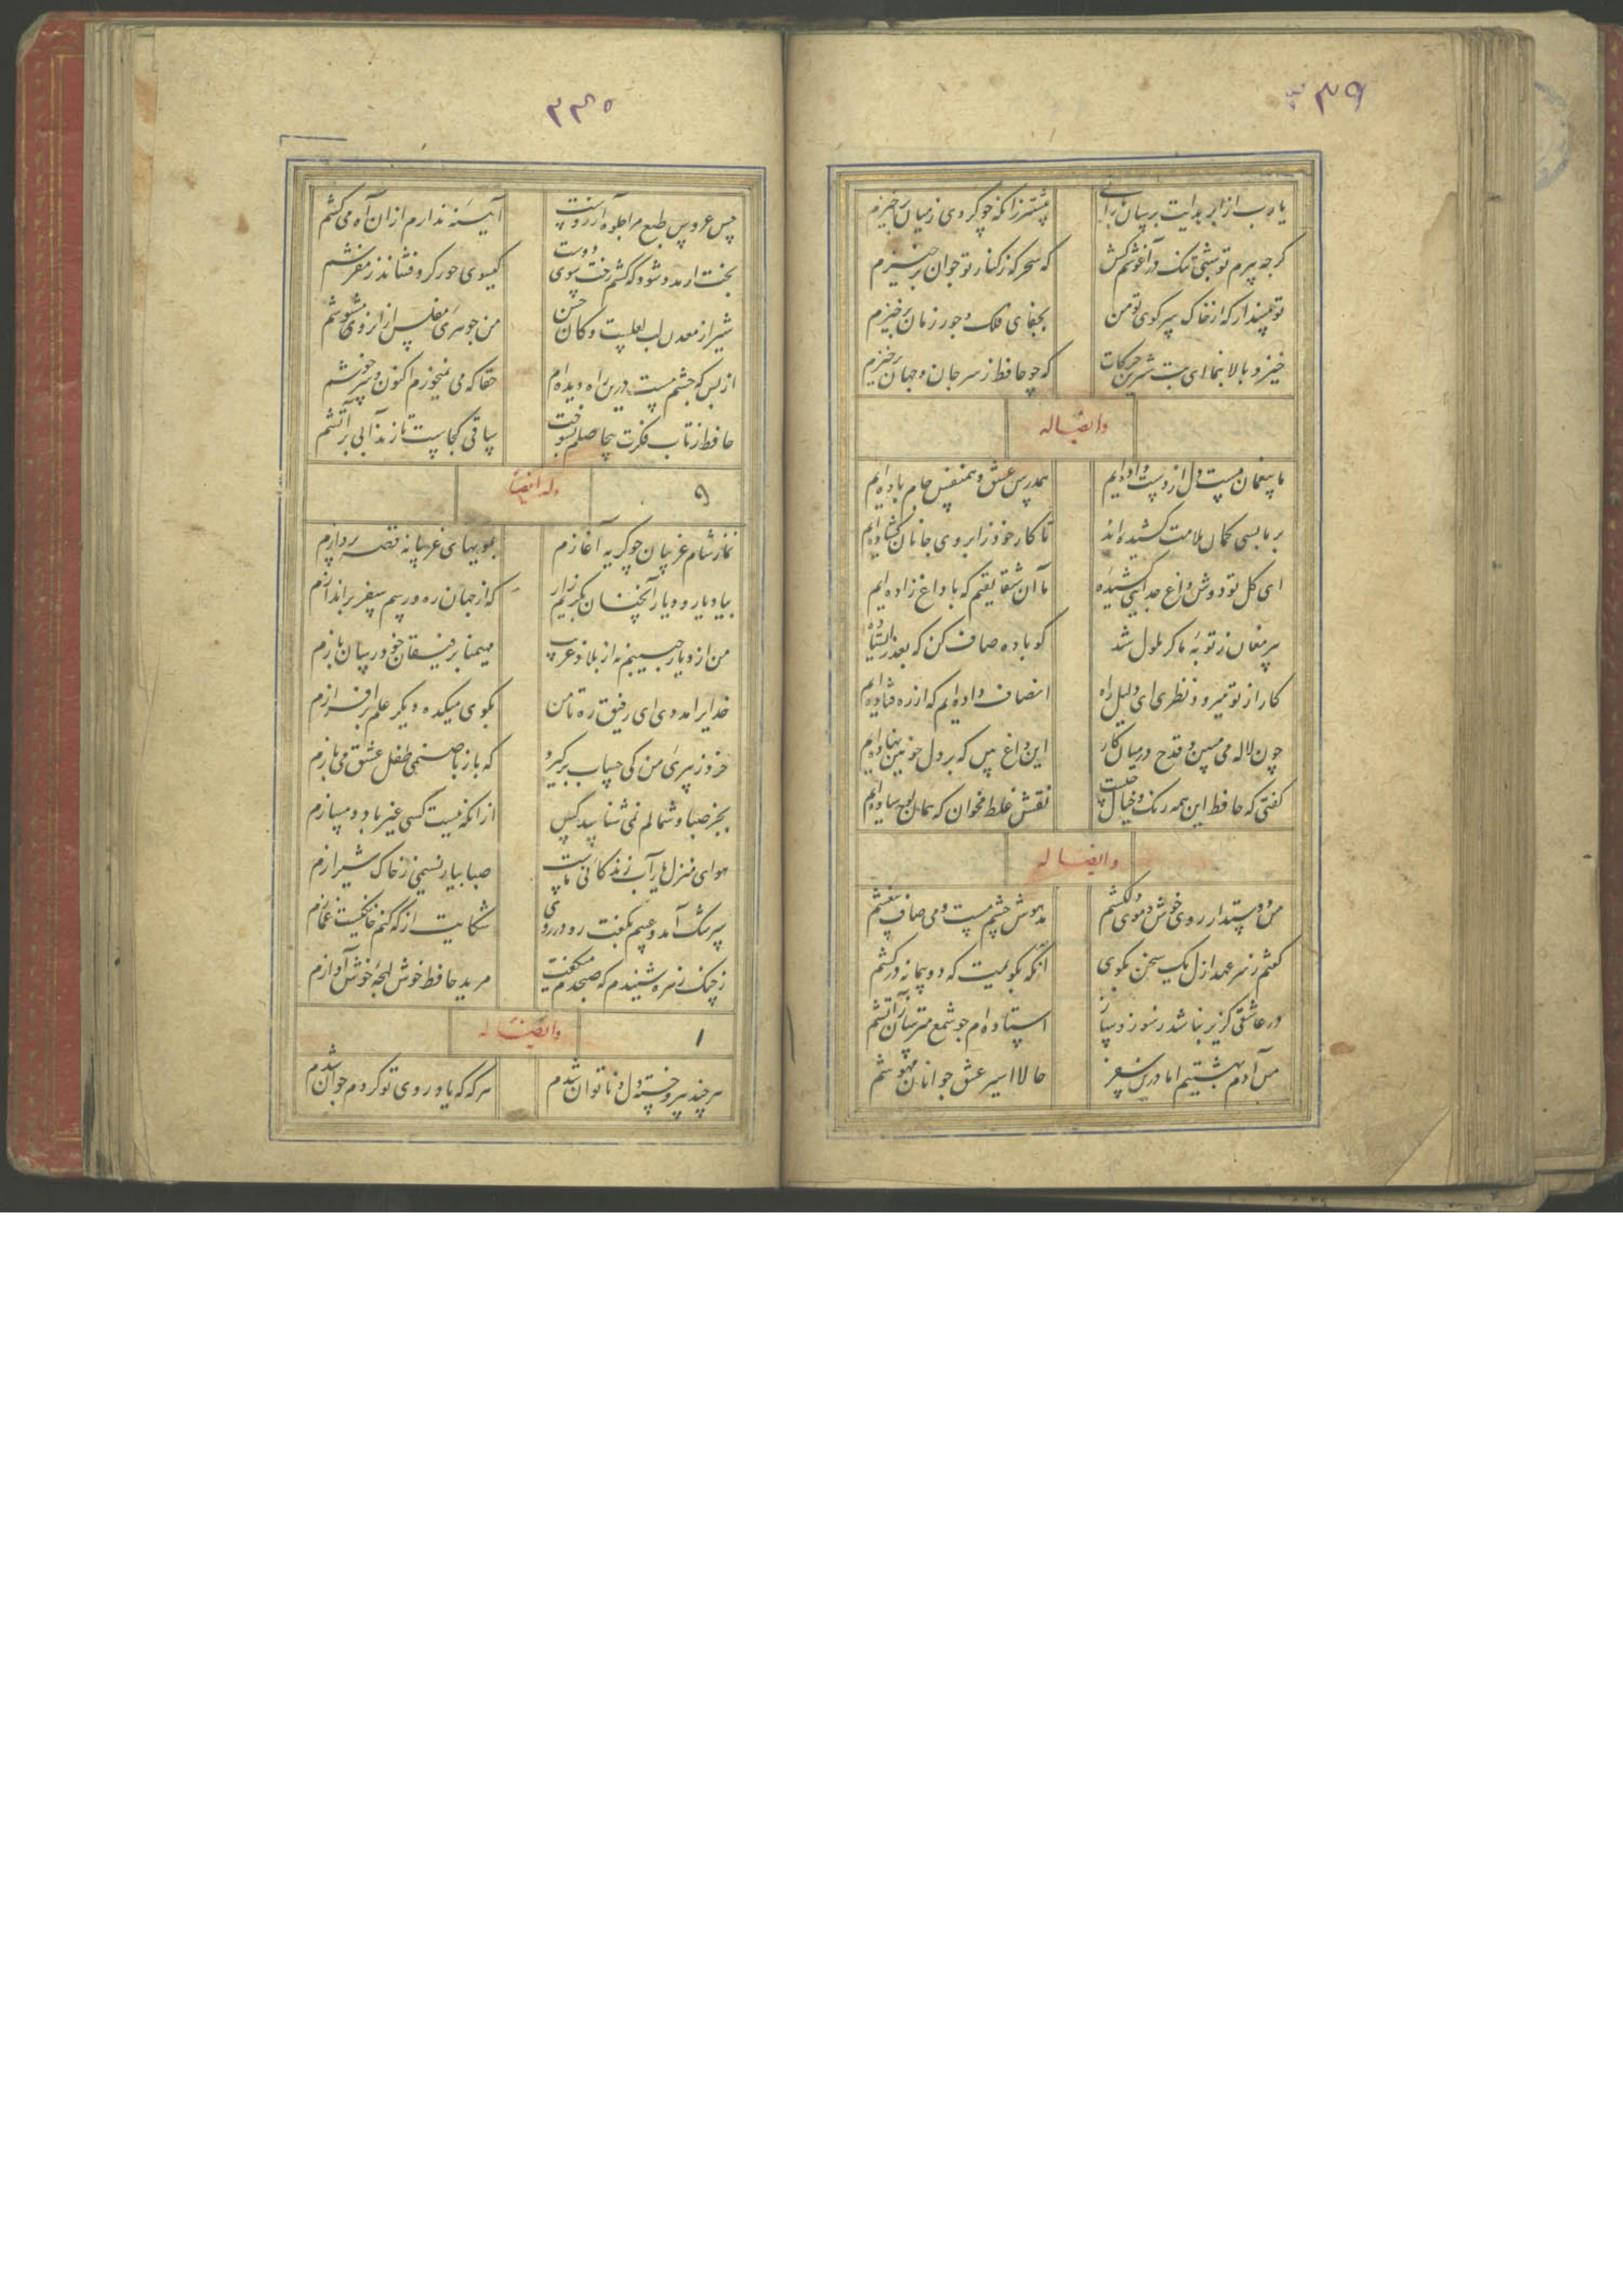 ۳۳۹
یارب از ابر هدایت برسان بارانی    پیشتر زانکه چو گردی ز میان برخیزم
کرجه پیرم تو شبی تنک در آغوشم کش    که سحرکه ز کنار تو جوان برخیزم
تو مپندار که از خاک سر کوی تو من    بجفای فلک و جور زمان برخیزم
خیز و بالا بنما ای بت شیرین حرکات    که چو حافظ ز سر جان و جهان برخیزم
وایضا له
ما بیغمان مست دل از دست داده‌ایم    همدرس عشق و همنفس جام باده‌ایم
بر ما بسی کمان ملامت کشیده‌اند    تا کار خود ز ابروی جانان کشاده‌ایم
ای کل تو دوش داغ جدایی کشیده    ما آن شقایقیم که با داغ زاده‌ایم
پیر مغان ز توبهٔ ما کر ملول شد    کو باده صاف کن که بعذر ایستاده‌ایم
کار از تو میرود نظری ای دلیل راه    انصاف داده‌ایم که از ره فتاده‌ایم
چون لاله می مبین و قدح در میان کار    این داغ بین که بر دل خونین نهاده‌ایم
کفتی که حافظ این همه رنک و خیال چیست    نقش غلط مخوان که همان لوح ساده‌ایم
وایضا له
من دوستدار روی خوش و موی دلکشم    مدهوش چشم مست و می صاف بیغشم
کفتم ز سر عهد ازل یک سخن بکوی    آنکه بکویمت که دو پیمانه درکشم
در عاشقی کزیر نباشد ز سوز و ساز    استاده‌ام جو شمع مترسان ز آتشم
من آدم بهشتیم اما درین سفر    حالا اسیر عشق جوانان مهوشم
۳۴۰
حسن عروس طبع مرا جلوه آرزوست    آیینهٔ ندارم از آن آه می‌کشم
بخت ار مدد شود که کشم رخت سوی دوست    کیسوی حور کرد فشاند ز مفرشم
شیراز معدن لب لعلست و کان حسن    من جوهری مفلس از آنروی مشوشم
از بس که چشم مست درین راه دیده‌ام    حقا که می نمیخورم اکنون و سرخوشم
حافظ ز تاب فکرت بیحاصلم بسوخت    ساقی کجاست تا زند آبی بر آتشم
وله ایضا    ۹
نماز شام غریبان چو کریه آغازم    بمویهای غریبانه قصه پردازم
بیاد یار و دیار آنچنان بکریم زار    که از جهان ره و رسم سفر براندازم
من از دیار حبیبم نه از بلاد غریب    مهیمنا برفیقان خود رسان بازم
خدایرا مددی ای رفیق ره تا من    بکوی میکده دیکر علم برافرازم
خرد ز پیری من کی حساب برکیرد    که باز با صنمی طفل عشق می‌بازم
بجز صبا و شمالم نمی‌شناسد کس    از آنکه نیست کسی غیر باد دمسازم
هوای منزل یار آب زندکانی ماست    صبا بیار نسیمی ز خاک شیرازم
سرشک آمد و عیبم بکفت رو در روی    شکایت از که کنم خانکیست غمازم
ز چنک زهره شنیدم که صبحدم میکفت    مرید حافظ خوش لهجهٔ خوش آوازم
وایضا له    ۱
هرچند پیر و خسته دل و ناتوان شدم    هرکه که یاد روی تو کردم جوان شدم